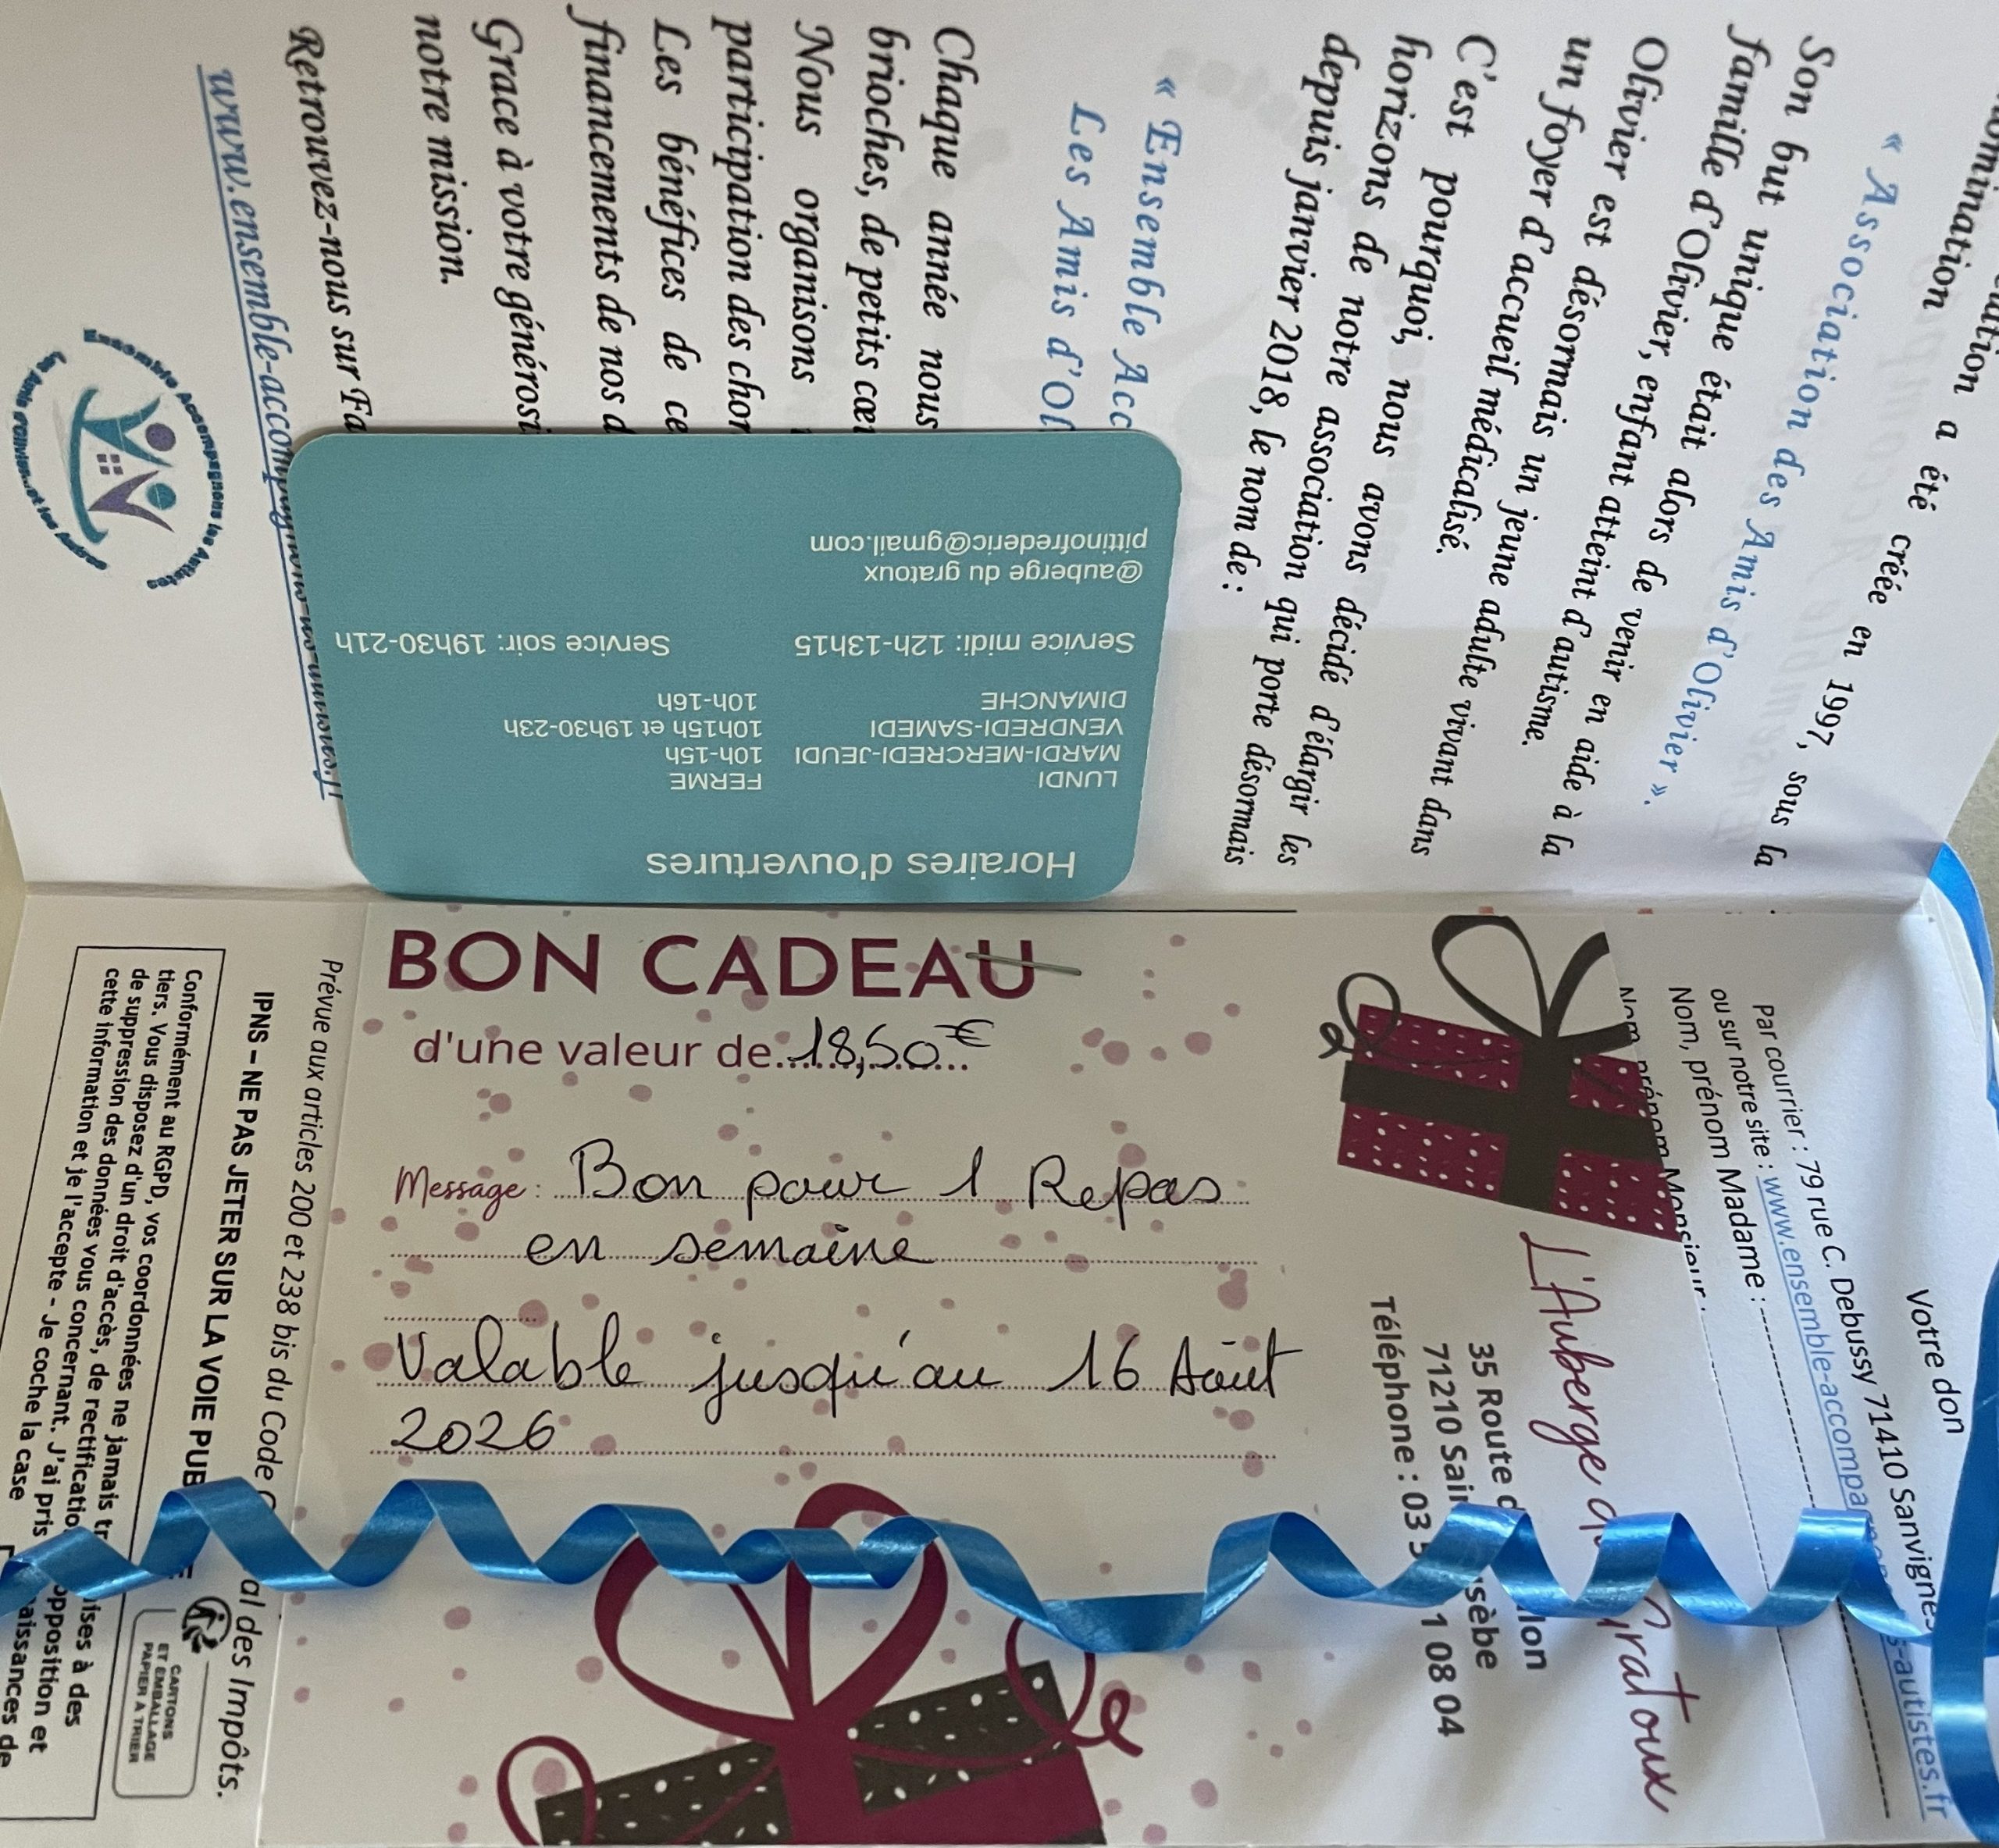 a été créée en 1997, sous la
dénomination
« Association des Amis d'Olivier ».
Son but unique était alors de venir en aide à la
famille d'Olivier, enfant atteint d'autisme.
Olivier est désormais un jeune adulte vivant dans
un foyer d'accueil médicalisé.
C'est pourquoi, nous avons décidé d'élargir les
horizons de notre association qui porte désormais
depuis janvier 2018, le nom de :
« Ensemble Acc
Les Amis d'Ol
Chaque année nous
brioches, de petits
Nous organisons
participation des
Les bénéfices de ce
financements de nos
Grace à votre générosi
notre mission.
Retrouvez-nous sur Fa
www.ensemble-accompagnons-les-autistes.fr
Ensemble Accompagnons les Autistes
Horaires d'ouvertures
LUNDI FERME
MARDI-MERCREDI-JEUDI 10h-15h
VENDREDI-SAMEDI 10h15h et 19h30-23h
DIMANCHE 10h-16h
Service midi: 12h-13h15 Service soir: 19h30-21h
@auberge du gratoux
pittinofrederic@gmail.com
BON CADEAU
d'une valeur de 18,50 €
Message : Bon pour 1 Repas
en semaine
Valable jusqu'au 16 Août
2026
L'Auberge du Gratoux
35 Route d lon
71210 Sain sèbe
Téléphone : 03 5 1 08 04
Votre don
Par courrier : 79 rue C. Debussy 71410 Sanvignes
ou sur notre site : www.ensemble-accompagnons-les-autistes.fr
Nom, prénom Madame :
Nom, prénom Monsieur :
Prévue aux articles 200 et 238 bis du Code Général des Impôts.
IPNS – NE PAS JETER SUR LA VOIE PUBLIQUE
CARTONS
ET EMBALLAGE
PAPIER À TRIER
Conformément au RGPD, vos coordonnées ne jamais transmises à des
tiers. Vous disposez d'un droit d'accès, de rectification, opposition et
de suppression des données vous concernant. J'ai pris connaissances de
cette information et je l'accepte - Je coche la case